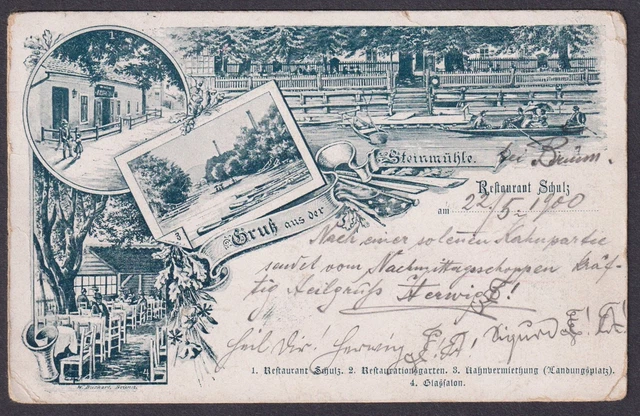 Gruß aus der
Steinmühle. bei Brünn.
Restaurant Schulz
am 22/5. 1900
Nach einer solennen Kahnpartie
sendet vom Nachmittagsschoppen kräf-
tig Heilgruß Herwig!
Heil Dir! Herwig Sigurd
1. Restaurant Schulz. 2. Restaurationsgarten. 3. Kahnvermiethung (Landungsplatz).
4. Glassalon.
1
3
4